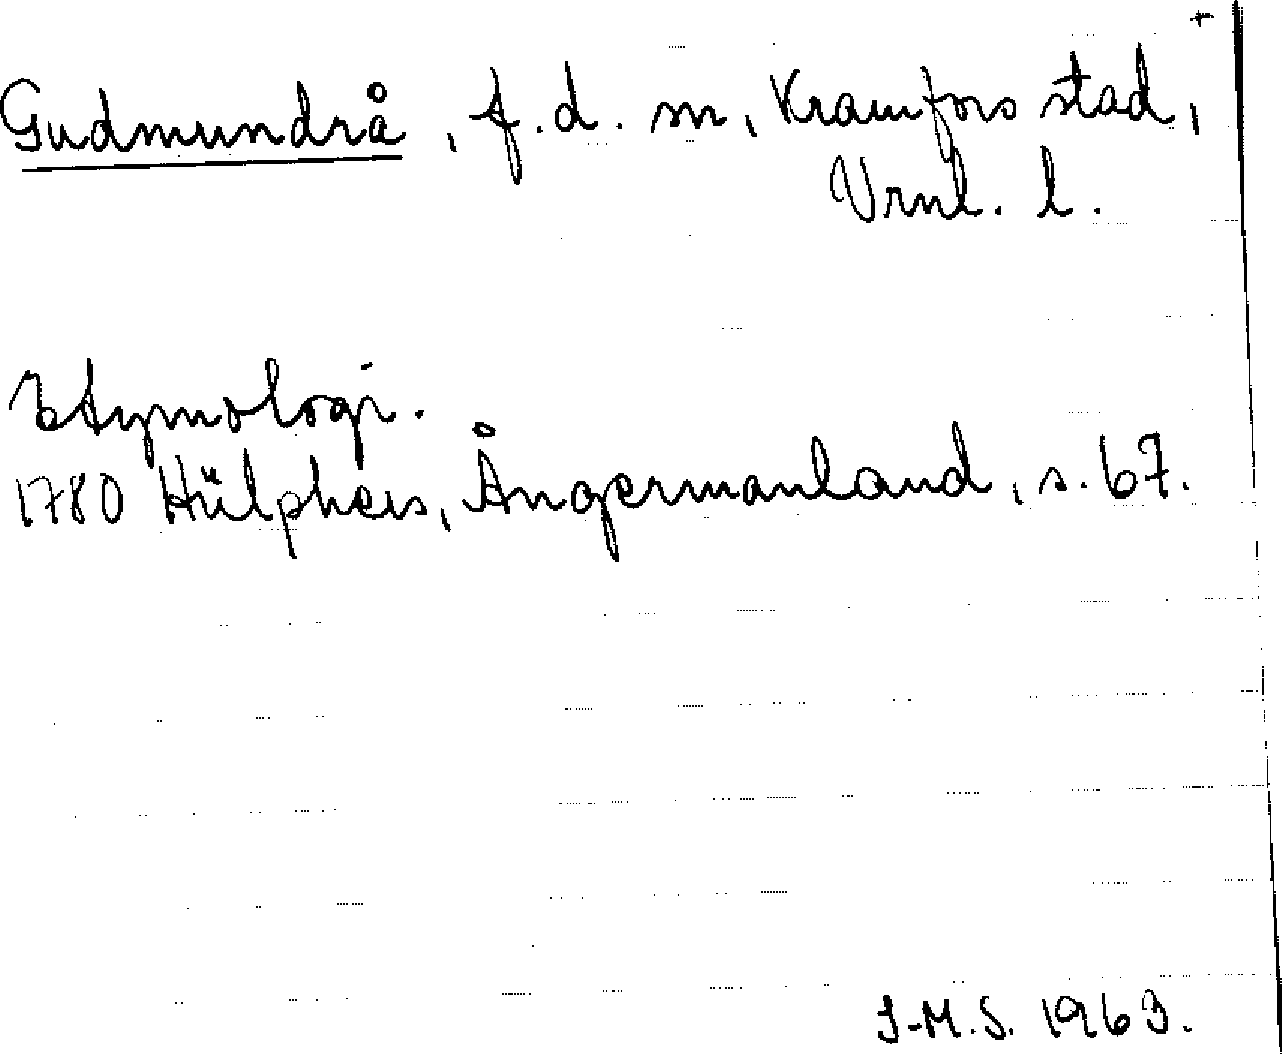 +
Gudmundrå, f.d. sn, Kramfors stad,
Vrnl. l.
Etymologi.
1780 Hülphers, Ångermanland, s. 67.
I-M.S. 1963.